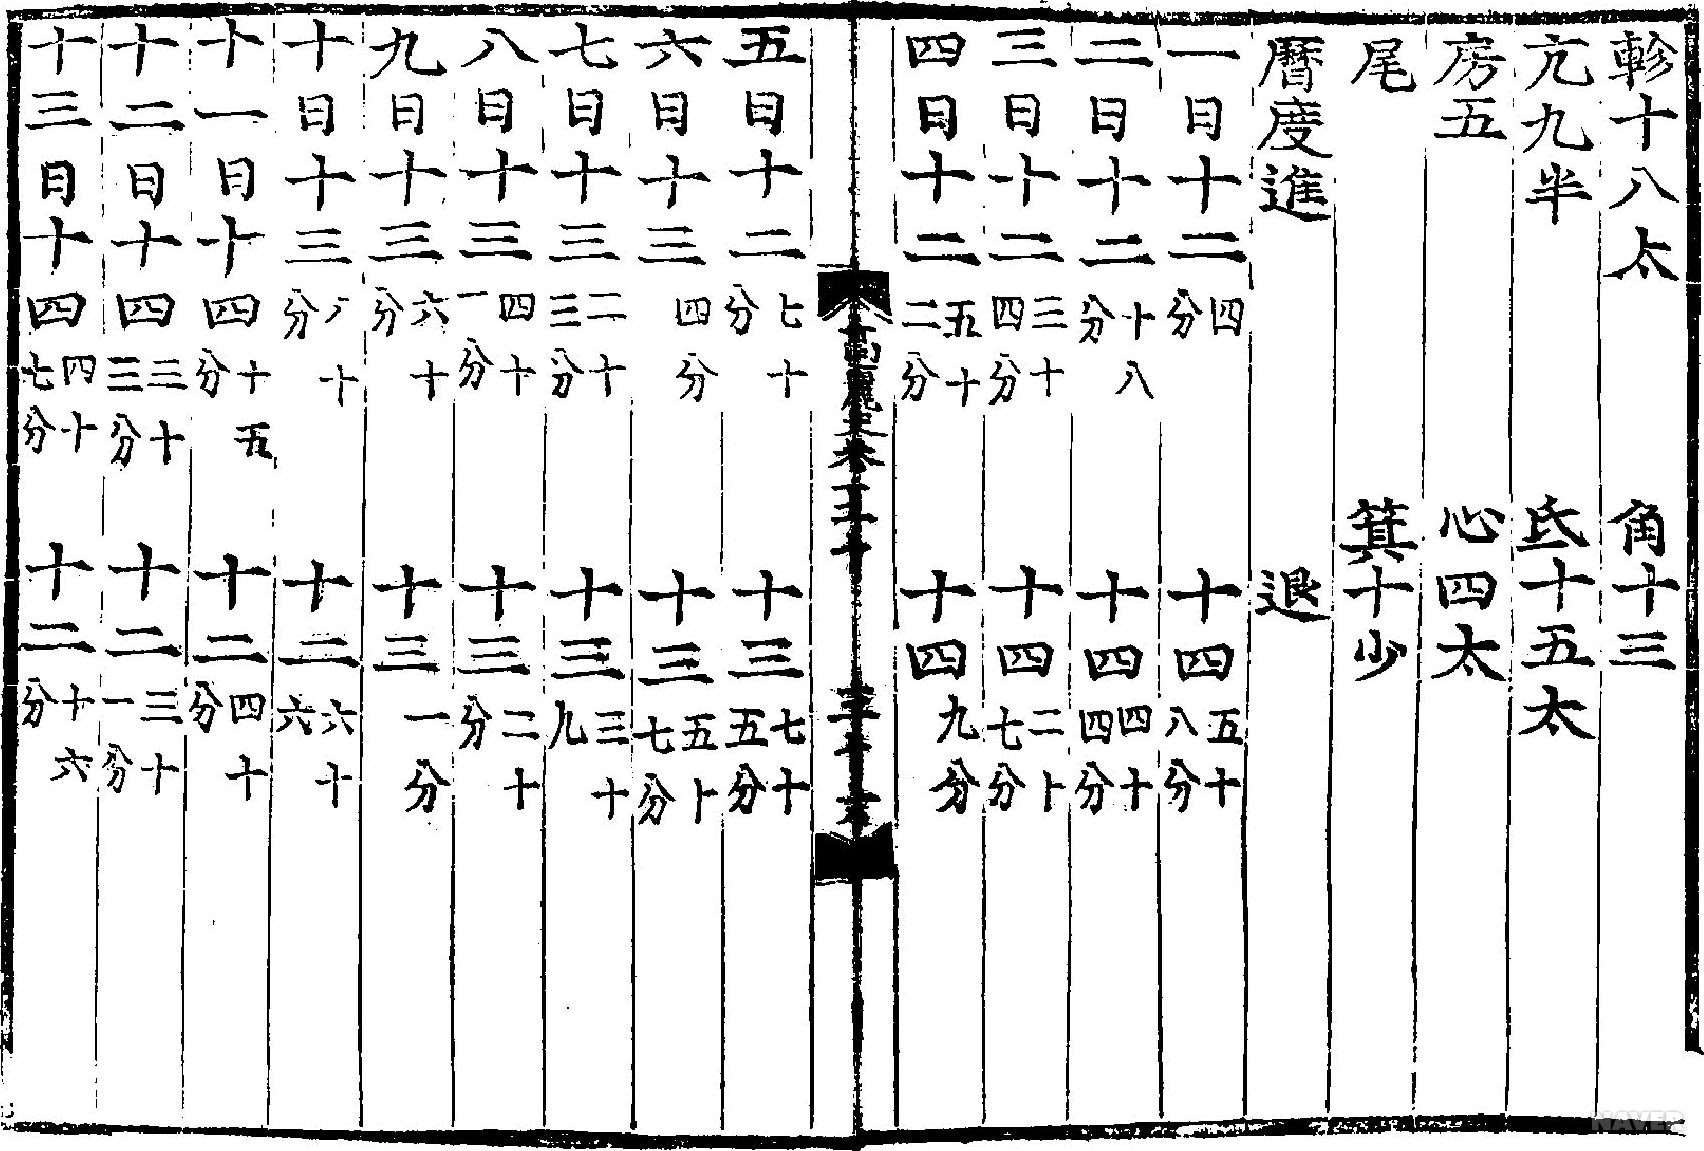 軫十八太　角十三
亢九半　氐十五太
房五　心四太
尾　箕十少
曆度進　退
一日十二四分　十四五十八分
二日十二十八分　十四四十四分
三日十二三十四分　十四二十七分
四日十二五十二分　十四九分
高麗史卷
五日十二七十分　十三七十五分
六日十三四分　十三五十七分
七日十三二十三分　十三三十九
八日十三四十一分　十三二十分
九日十三六十分　十三一分
十日十三八十分　十二六十六
十一日十四十五分　十二四十分
十二日十四三十三分　十二三十一分
十三日十四四十七分　十二十六分
NAVER